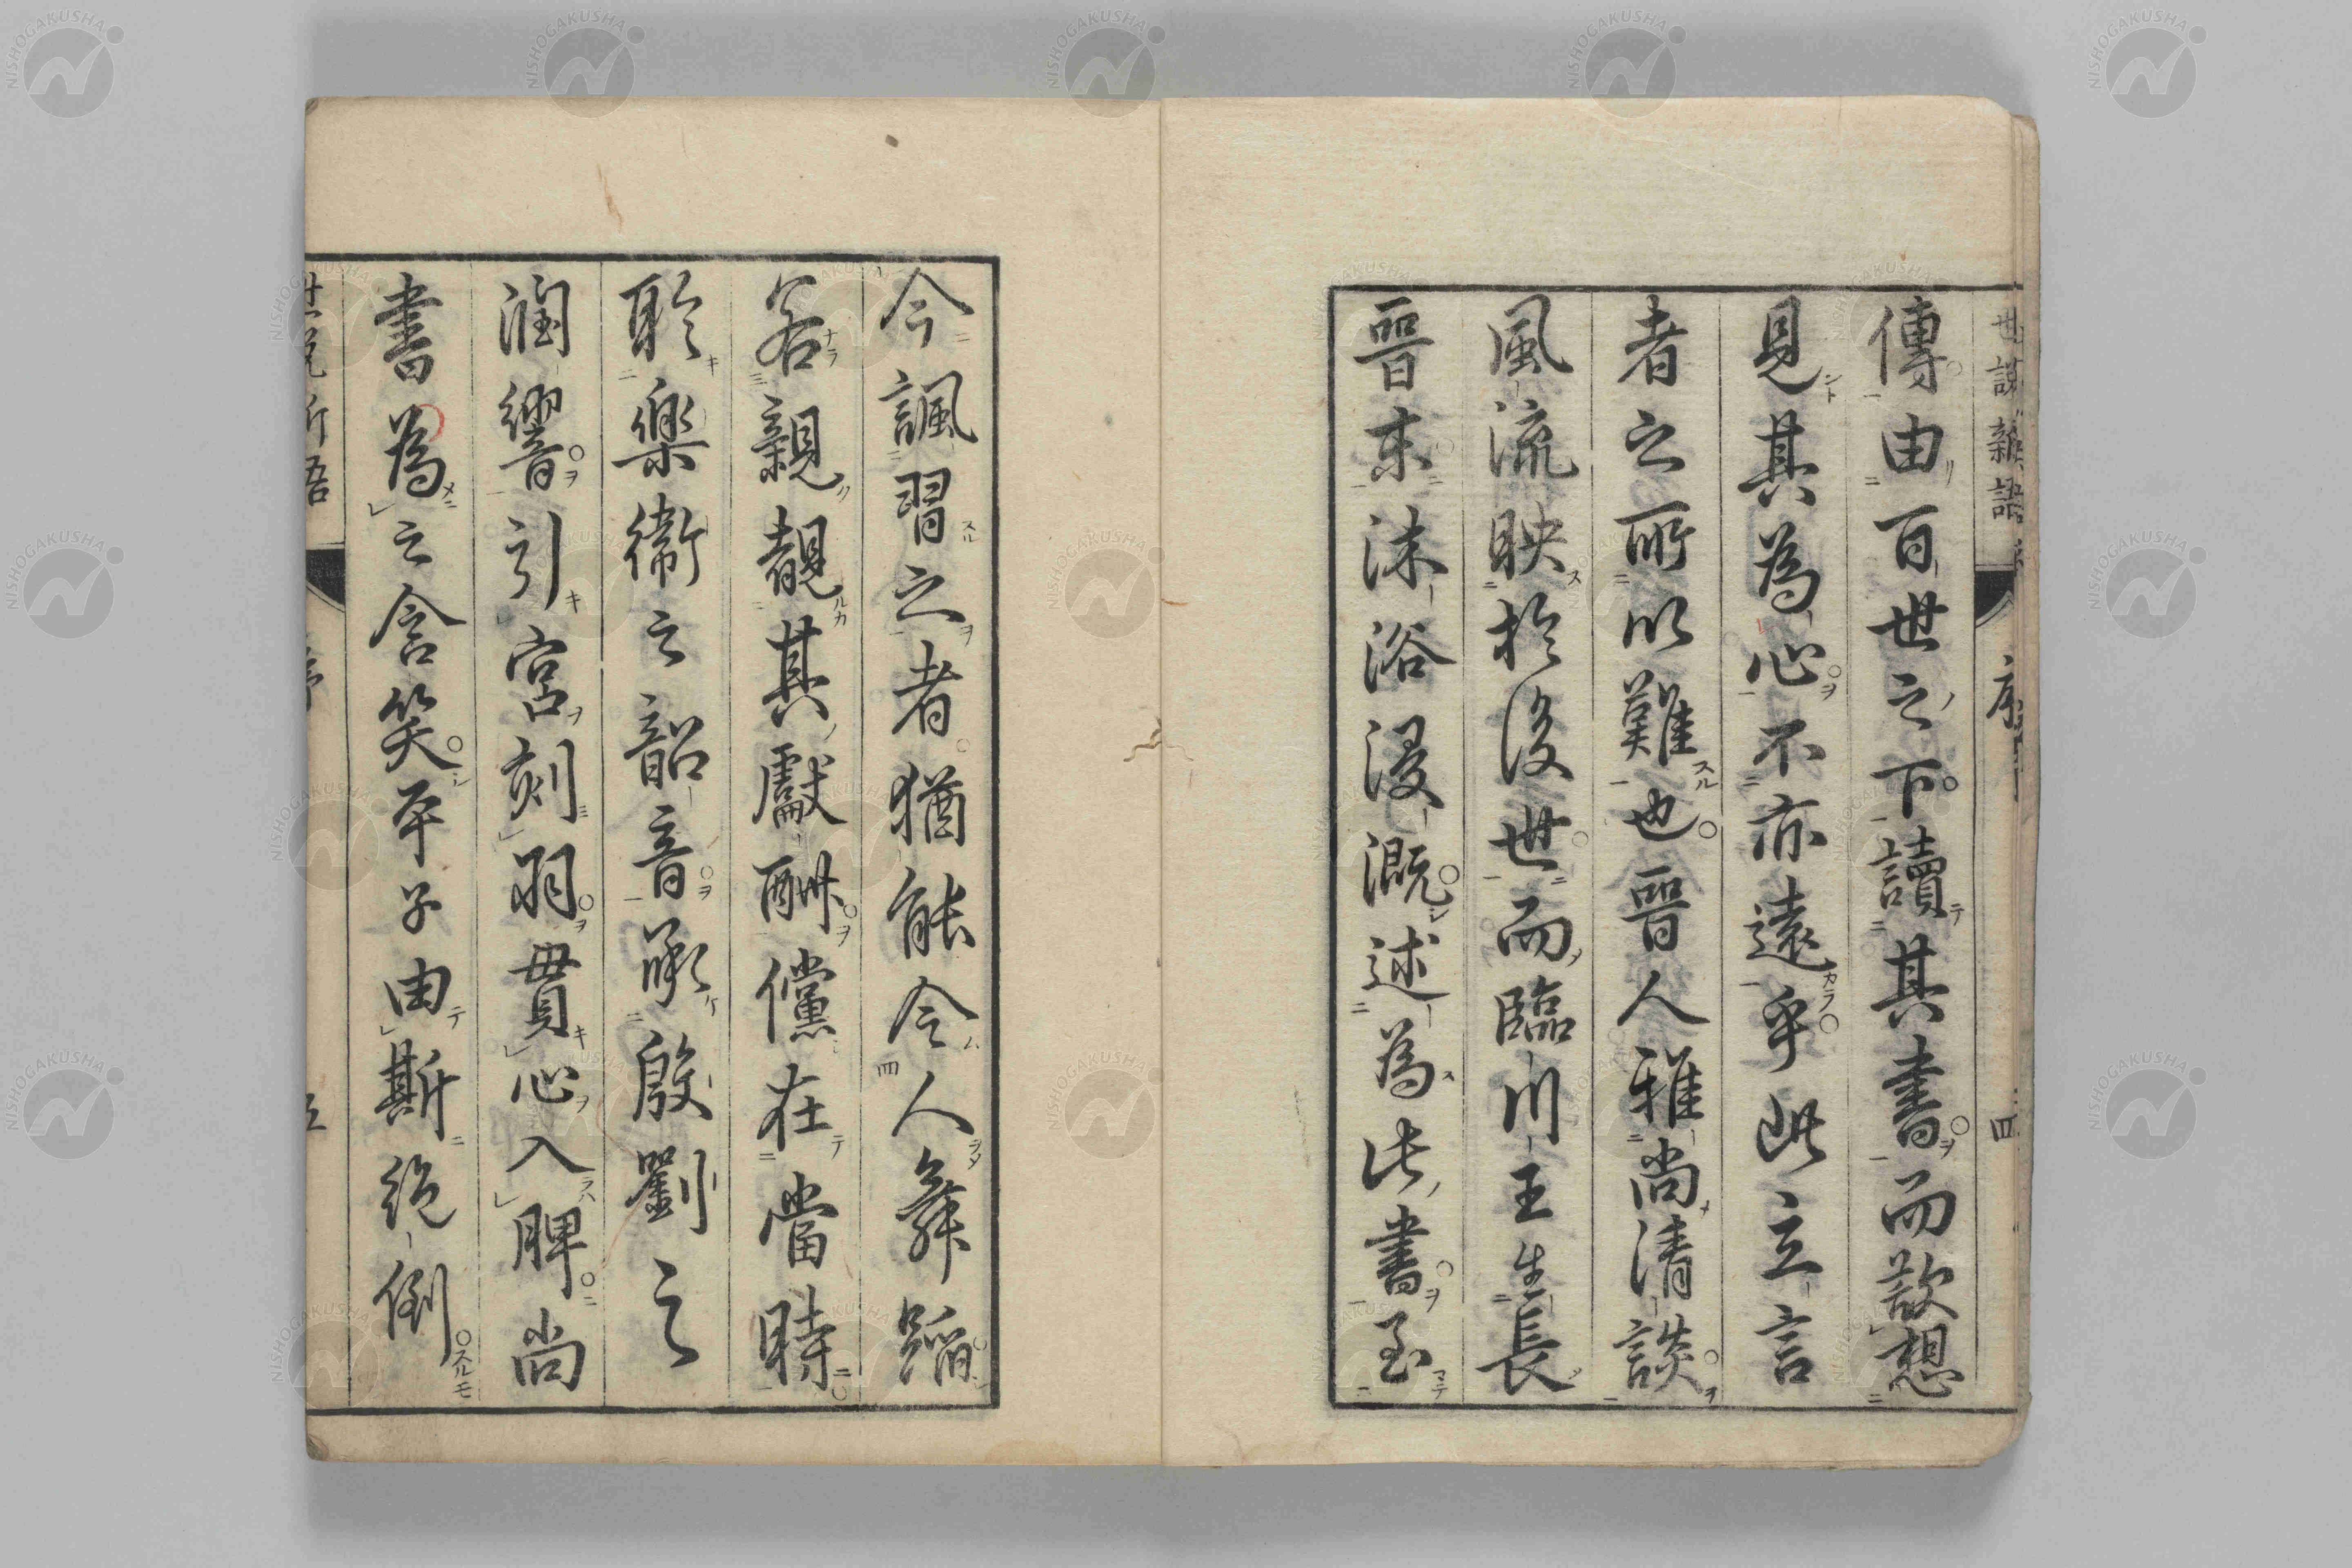 世說新語 序 四
傳由百世之下讀其書而欲想
見其為心不亦遠乎此立言
者之所以難也晋人雅尚清談
風流映於後世而臨川王生長
晋末沐浴浸溉述為此書至
今諷習之者猶能令人舞蹈
若親覩其獻酬儻在當時
聆樂衛之韶音承殷劉之
潤響引宮刻羽貫心入脾尚
書為之含笑平子由斯絶倒
世說新語 序 五
NISHOGAKUSHA